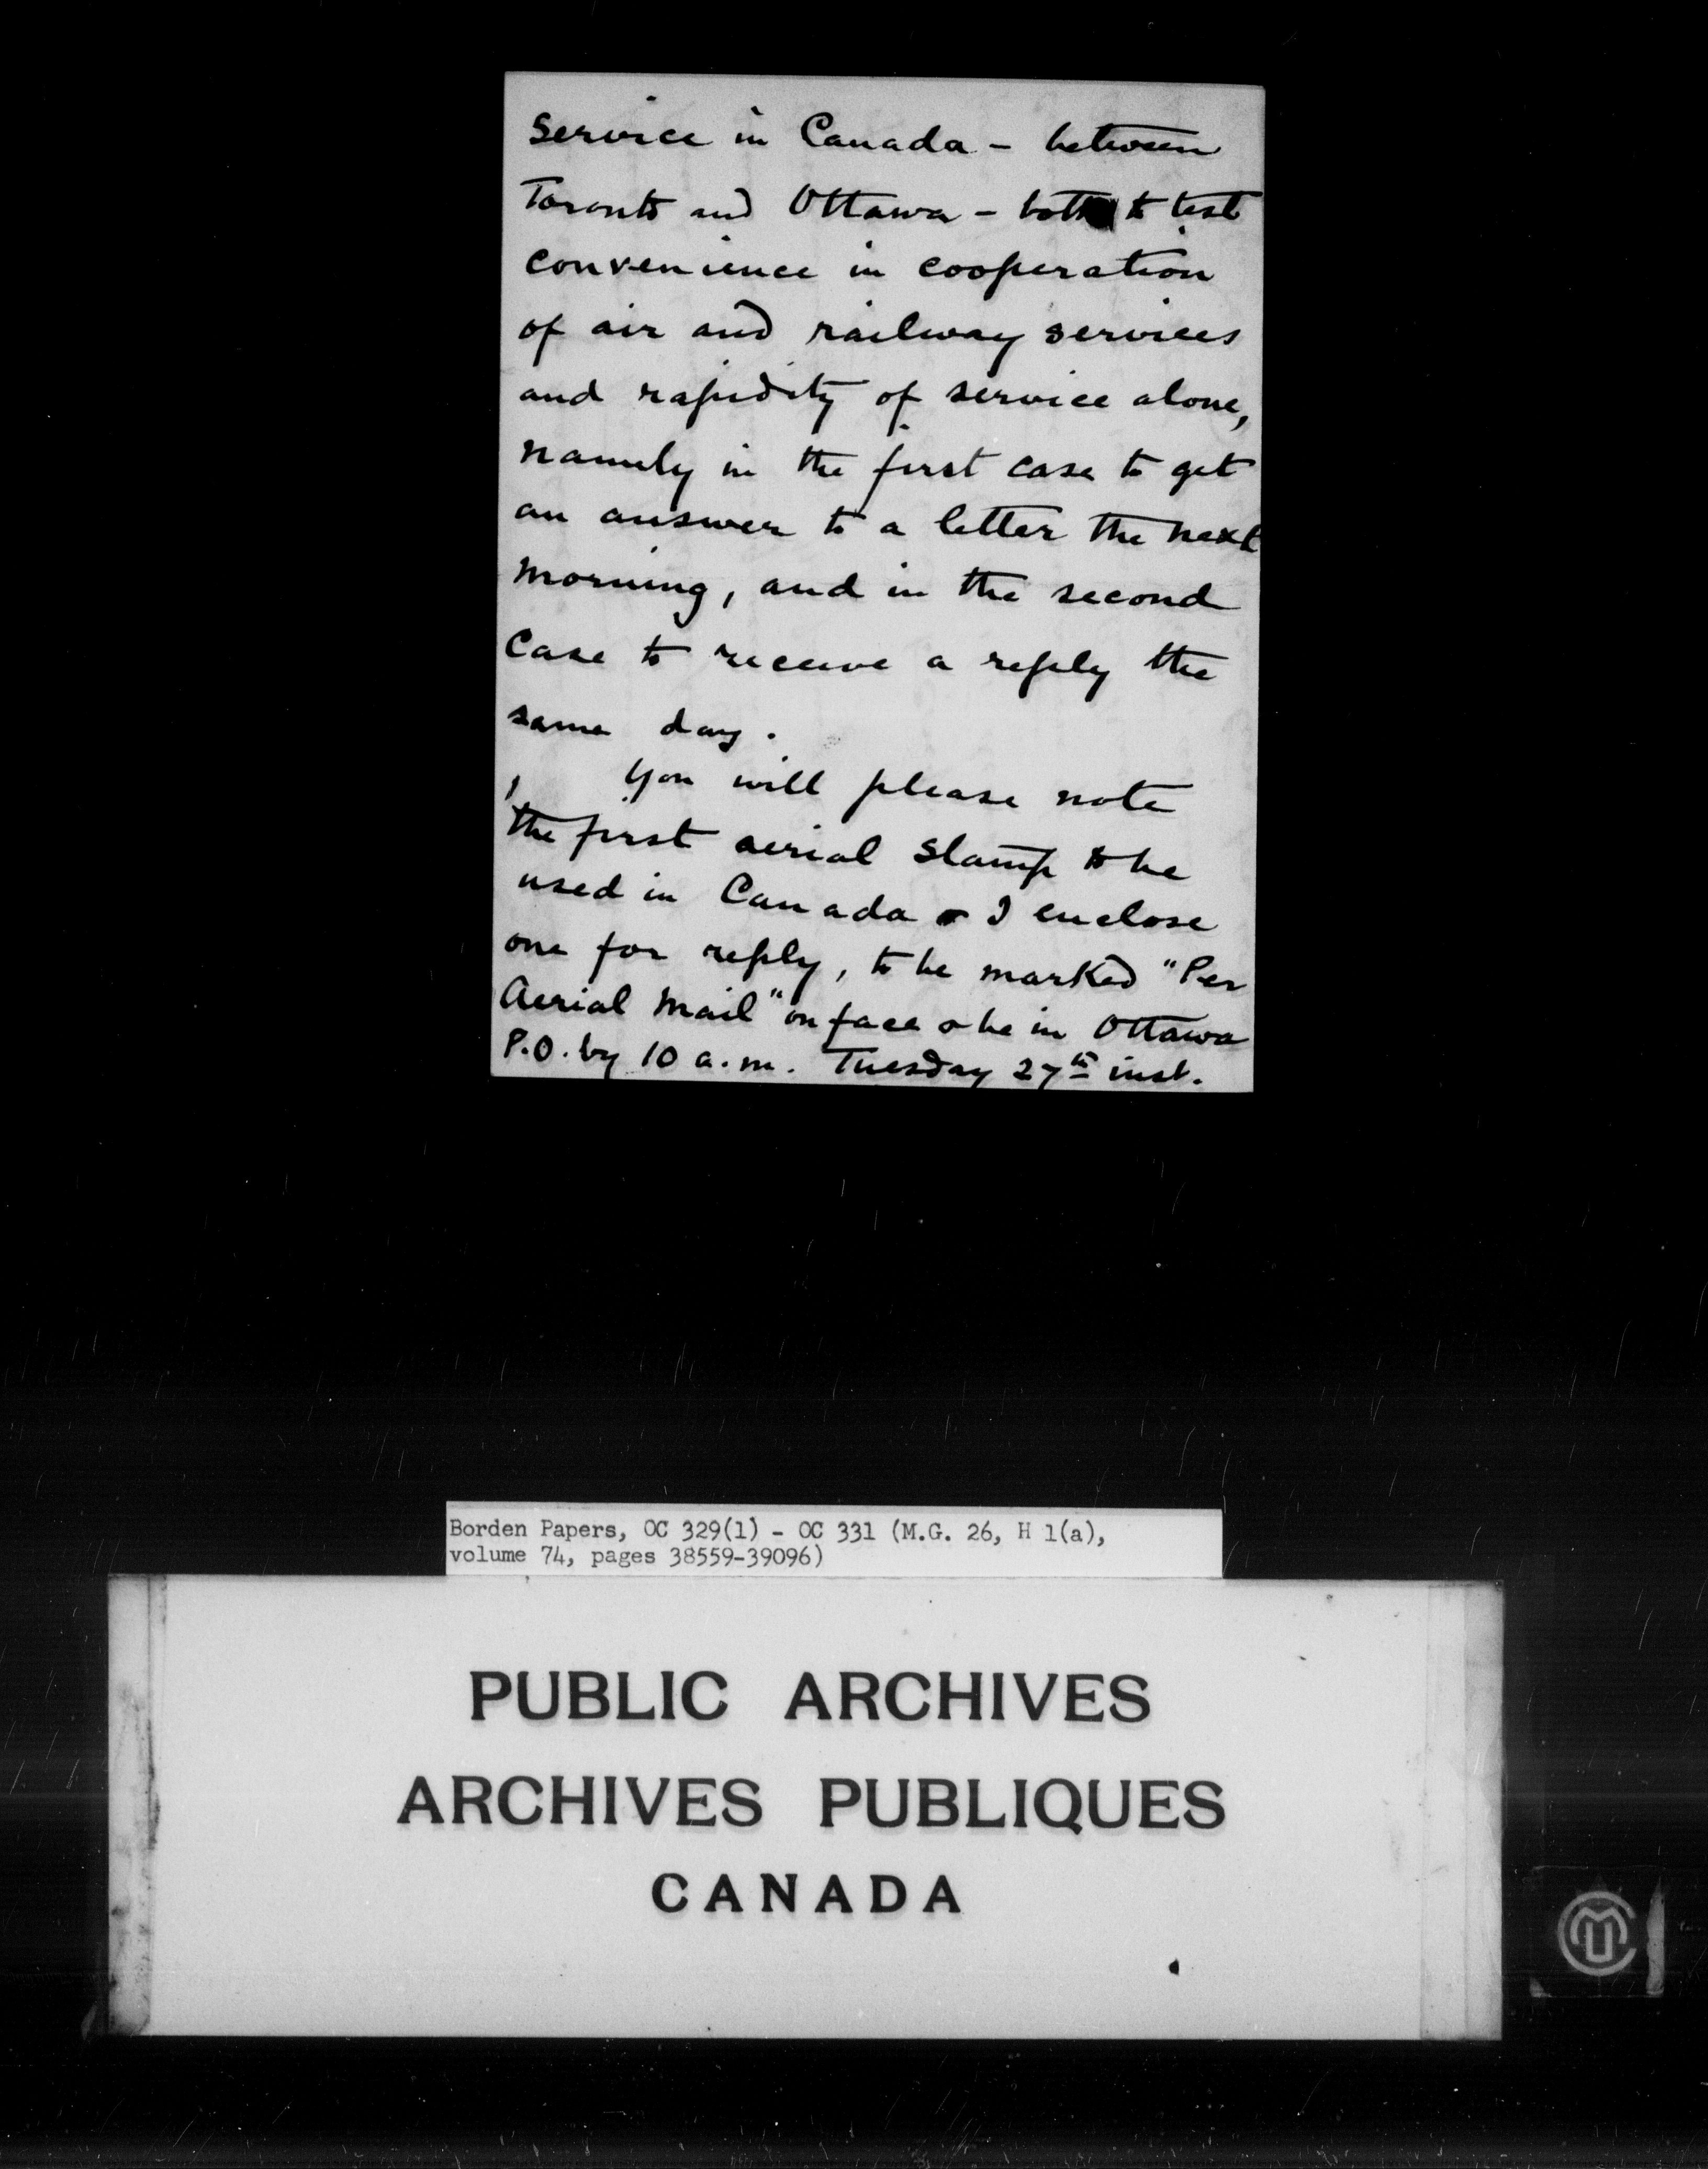 service in Canada - between
Toronto and Ottawa - both to test
convenience in cooperation
of air and railway services
and rapidity of service alone,
namely in the first case to get
an answer to a letter the next
morning, and in the second
case to receive a reply the
same day.
You will please note
the first aerial stamp to be
used in Canada & I enclose
one for reply, to be marked "Per
Aerial Mail" on face & be in Ottawa
P.O. by 10 a.m. Tuesday 27th inst.
Borden Papers, OC 329(1) - OC 331 (M.G. 26, H 1(a),
volume 74, pages 38559-39096)
PUBLIC ARCHIVES
ARCHIVES PUBLIQUES
CANADA